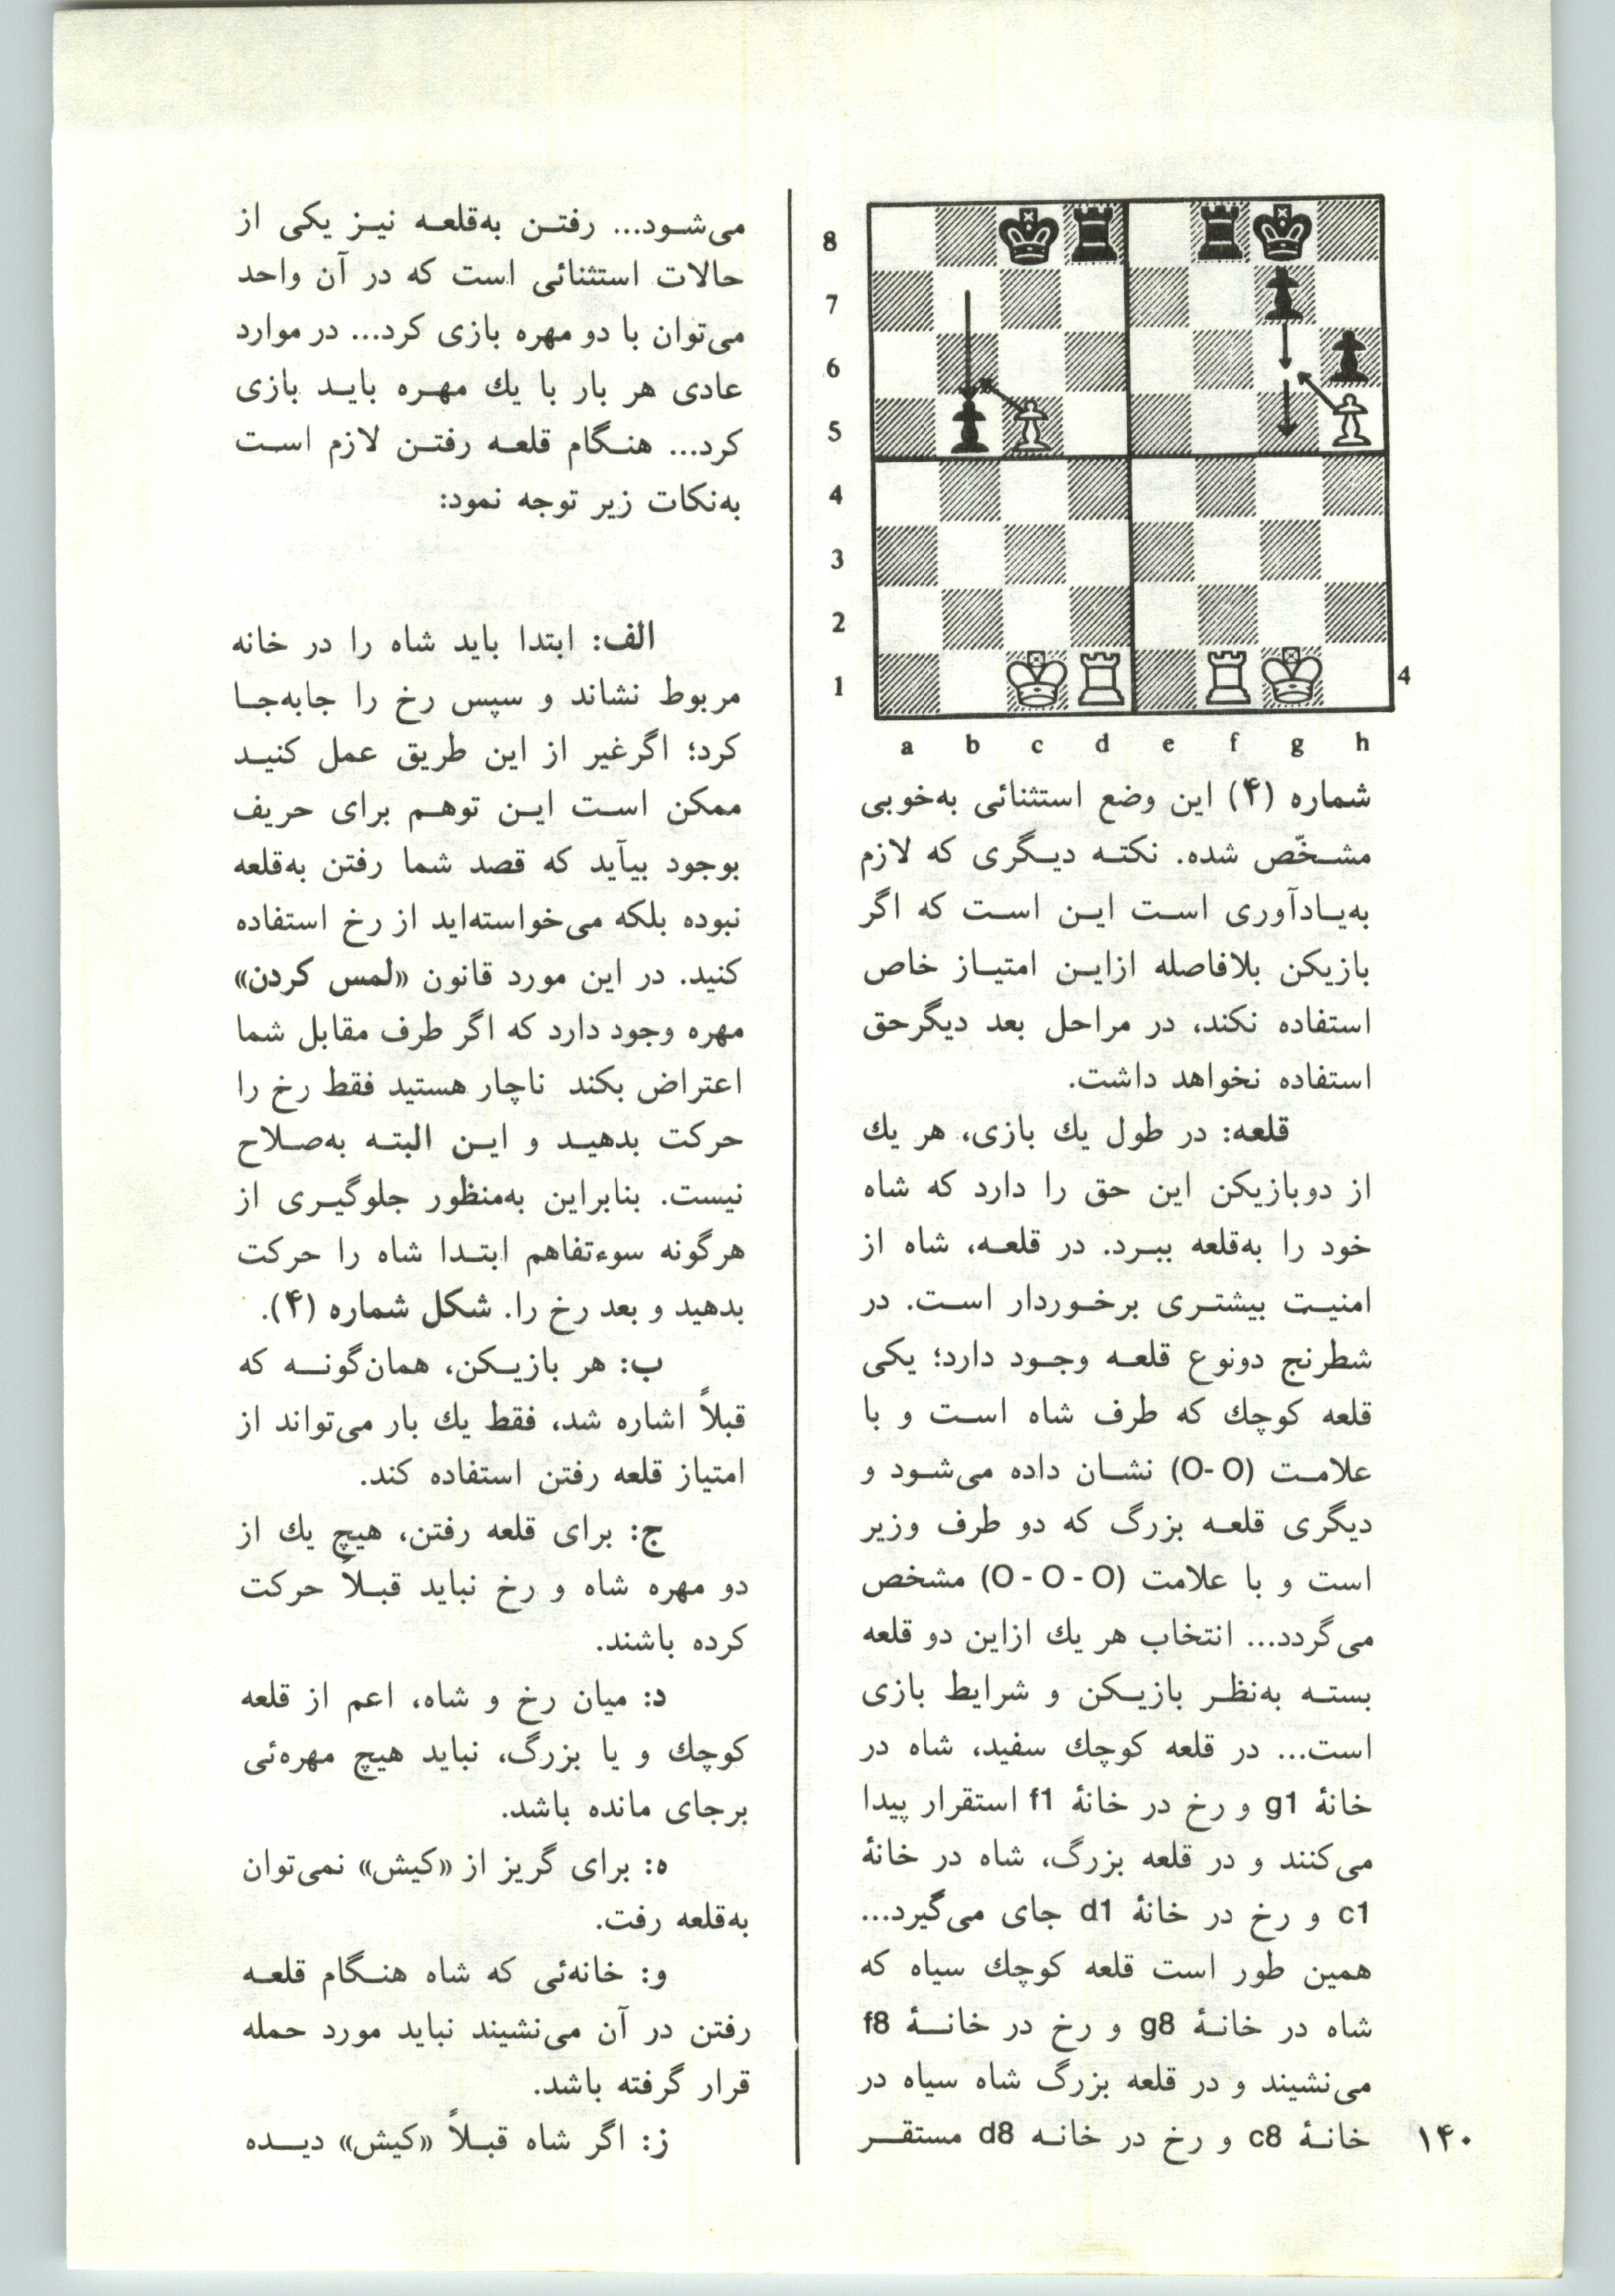 8
7
6
5
4
3
2
1
4
a b c d e f g h
شماره (۴) این وضع استثنائی به‌خوبی
مشخّص شده. نکته دیگری که لازم
به‌یادآوری است این است که اگر
بازیکن بلافاصله ازاین امتیاز خاص
استفاده نکند، در مراحل بعد دیگرحق
استفاده نخواهد داشت.
قلعه: در طول یك بازی، هر یك
از دوبازیکن این حق را دارد که شاه
خود را به‌قلعه ببرد. در قلعه، شاه از
امنیت بیشتری برخوردار است. در
شطرنج دونوع قلعه وجود دارد؛ یکی
قلعه کوچك که طرف شاه است و با
علامت (O-O) نشان داده می‌شود و
دیگری قلعه بزرگ که دو طرف وزیر
است و با علامت (O-O-O) مشخص
می‌گردد... انتخاب هر یك ازاین دو قلعه
بسته به‌نظر بازیکن و شرایط بازی
است... در قلعه کوچك سفید، شاه در
خانهٔ g1 و رخ در خانهٔ f1 استقرار پیدا
می‌کنند و در قلعه بزرگ، شاه در خانهٔ
c1 و رخ در خانهٔ d1 جای می‌گیرد...
همین طور است قلعه کوچك سیاه که
شاه در خانهٔ g8 و رخ در خانهٔ f8
می‌نشیند و در قلعه بزرگ شاه سیاه در
خانهٔ c8 و رخ در خانه d8 مستقر
می‌شود... رفتن به‌قلعه نیز یکی از
حالات استثنائی است که در آن واحد
می‌توان با دو مهره بازی کرد... در موارد
عادی هر بار با یك مهره باید بازی
کرد... هنگام قلعه رفتن لازم است
به‌نکات زیر توجه نمود:
الف: ابتدا باید شاه را در خانه
مربوط نشاند و سپس رخ را جابه‌جا
کرد؛ اگرغیر از این طریق عمل کنید
ممکن است این توهم برای حریف
بوجود بیآید که قصد شما رفتن به‌قلعه
نبوده بلکه می‌خواسته‌اید از رخ استفاده
کنید. در این مورد قانون «لمس کردن»
مهره وجود دارد که اگر طرف مقابل شما
اعتراض بکند ناچار هستید فقط رخ را
حرکت بدهید و این البته به‌صلاح
نیست. بنابراین به‌منظور جلوگیری از
هرگونه سوءتفاهم ابتدا شاه را حرکت
بدهید و بعد رخ را. شکل شماره (۴).
ب: هر بازیکن، همان‌گونه که
قبلاً اشاره شد، فقط یك بار می‌تواند از
امتیاز قلعه رفتن استفاده کند.
ج: برای قلعه رفتن، هیچ یك از
دو مهره شاه و رخ نباید قبلاً حرکت
کرده باشند.
د: میان رخ و شاه، اعم از قلعه
کوچك و یا بزرگ، نباید هیچ مهره‌ئی
برجای مانده باشد.
ه: برای گریز از «کیش» نمی‌توان
به‌قلعه رفت.
و: خانه‌ئی که شاه هنگام قلعه
رفتن در آن می‌نشیند نباید مورد حمله
قرار گرفته باشد.
ز: اگر شاه قبلاً «کیش» دیده
۱۴۰